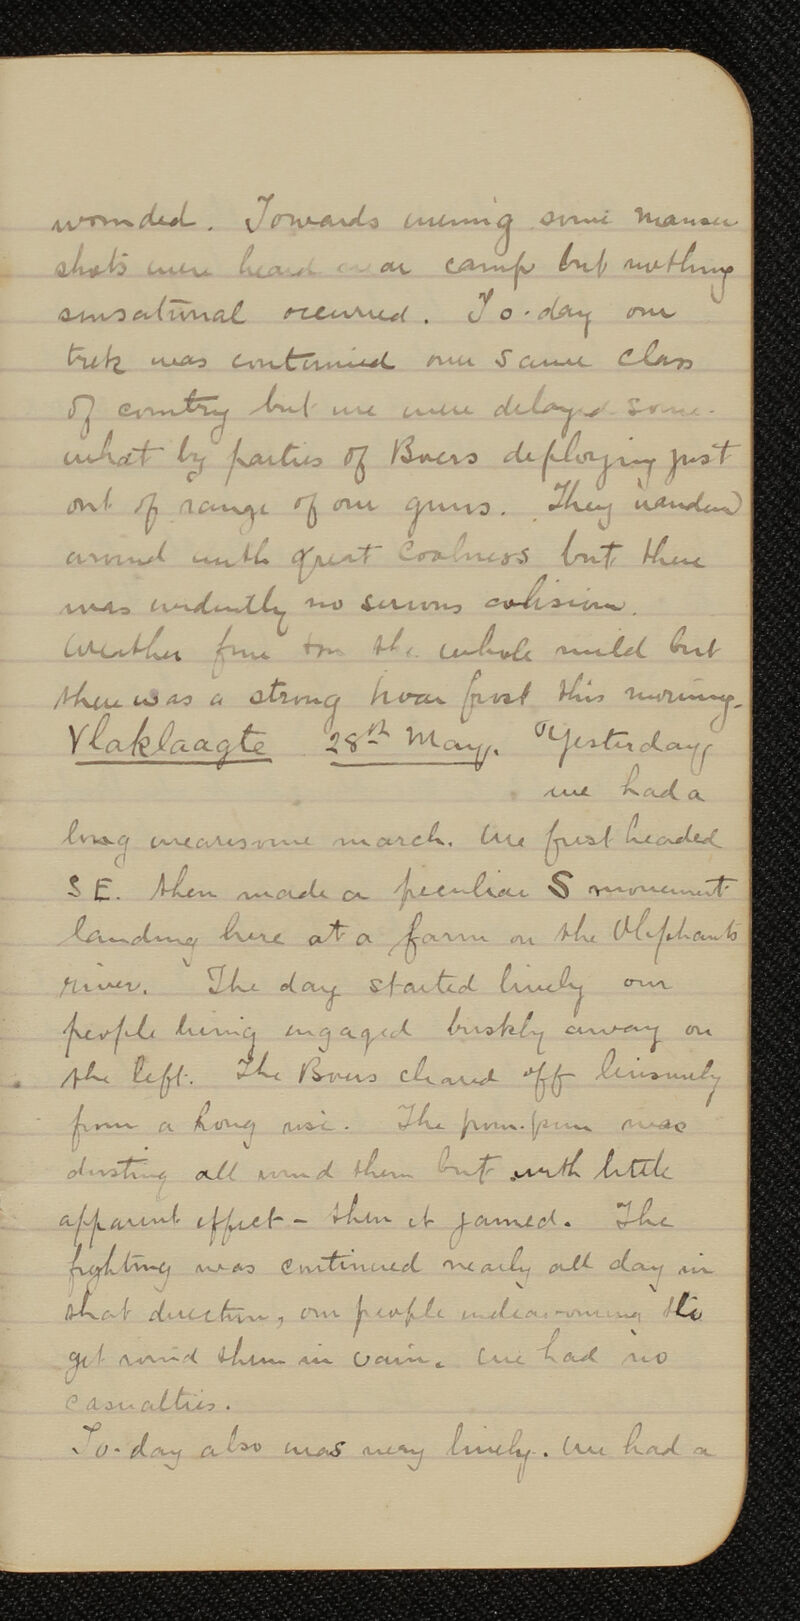 wounded. Towards evening some Mauser
shots were heard near camp but nothing
sensational occurred. To-day our
trek was continued over same class
of country but we were delayed some-
what by parties of Boers deploying just
out of range of our guns. They wandered
around with great coolness but there
was evidently no serious colision.
Weather fine & on the whole mild but
there was a strong hoar frost this morning.
Vlaklaagte 28th May. Yesterday
we had a
long wearisome march. We first headed
SE. then made a peculiar S movement
landing here at a farm on the Oliphants
river. The day started lively our
people being engaged briskly away on
the left. The Boers cleared off leisurely
from a long rise. The pom-pom was
dusting all round them but with little
apparent effect - then it jamed. The
fighting was continued nearly all day in
that direction, our people endeavouring to
get round them in vain. We had no
casualties.
To-day also was very lively. We had a